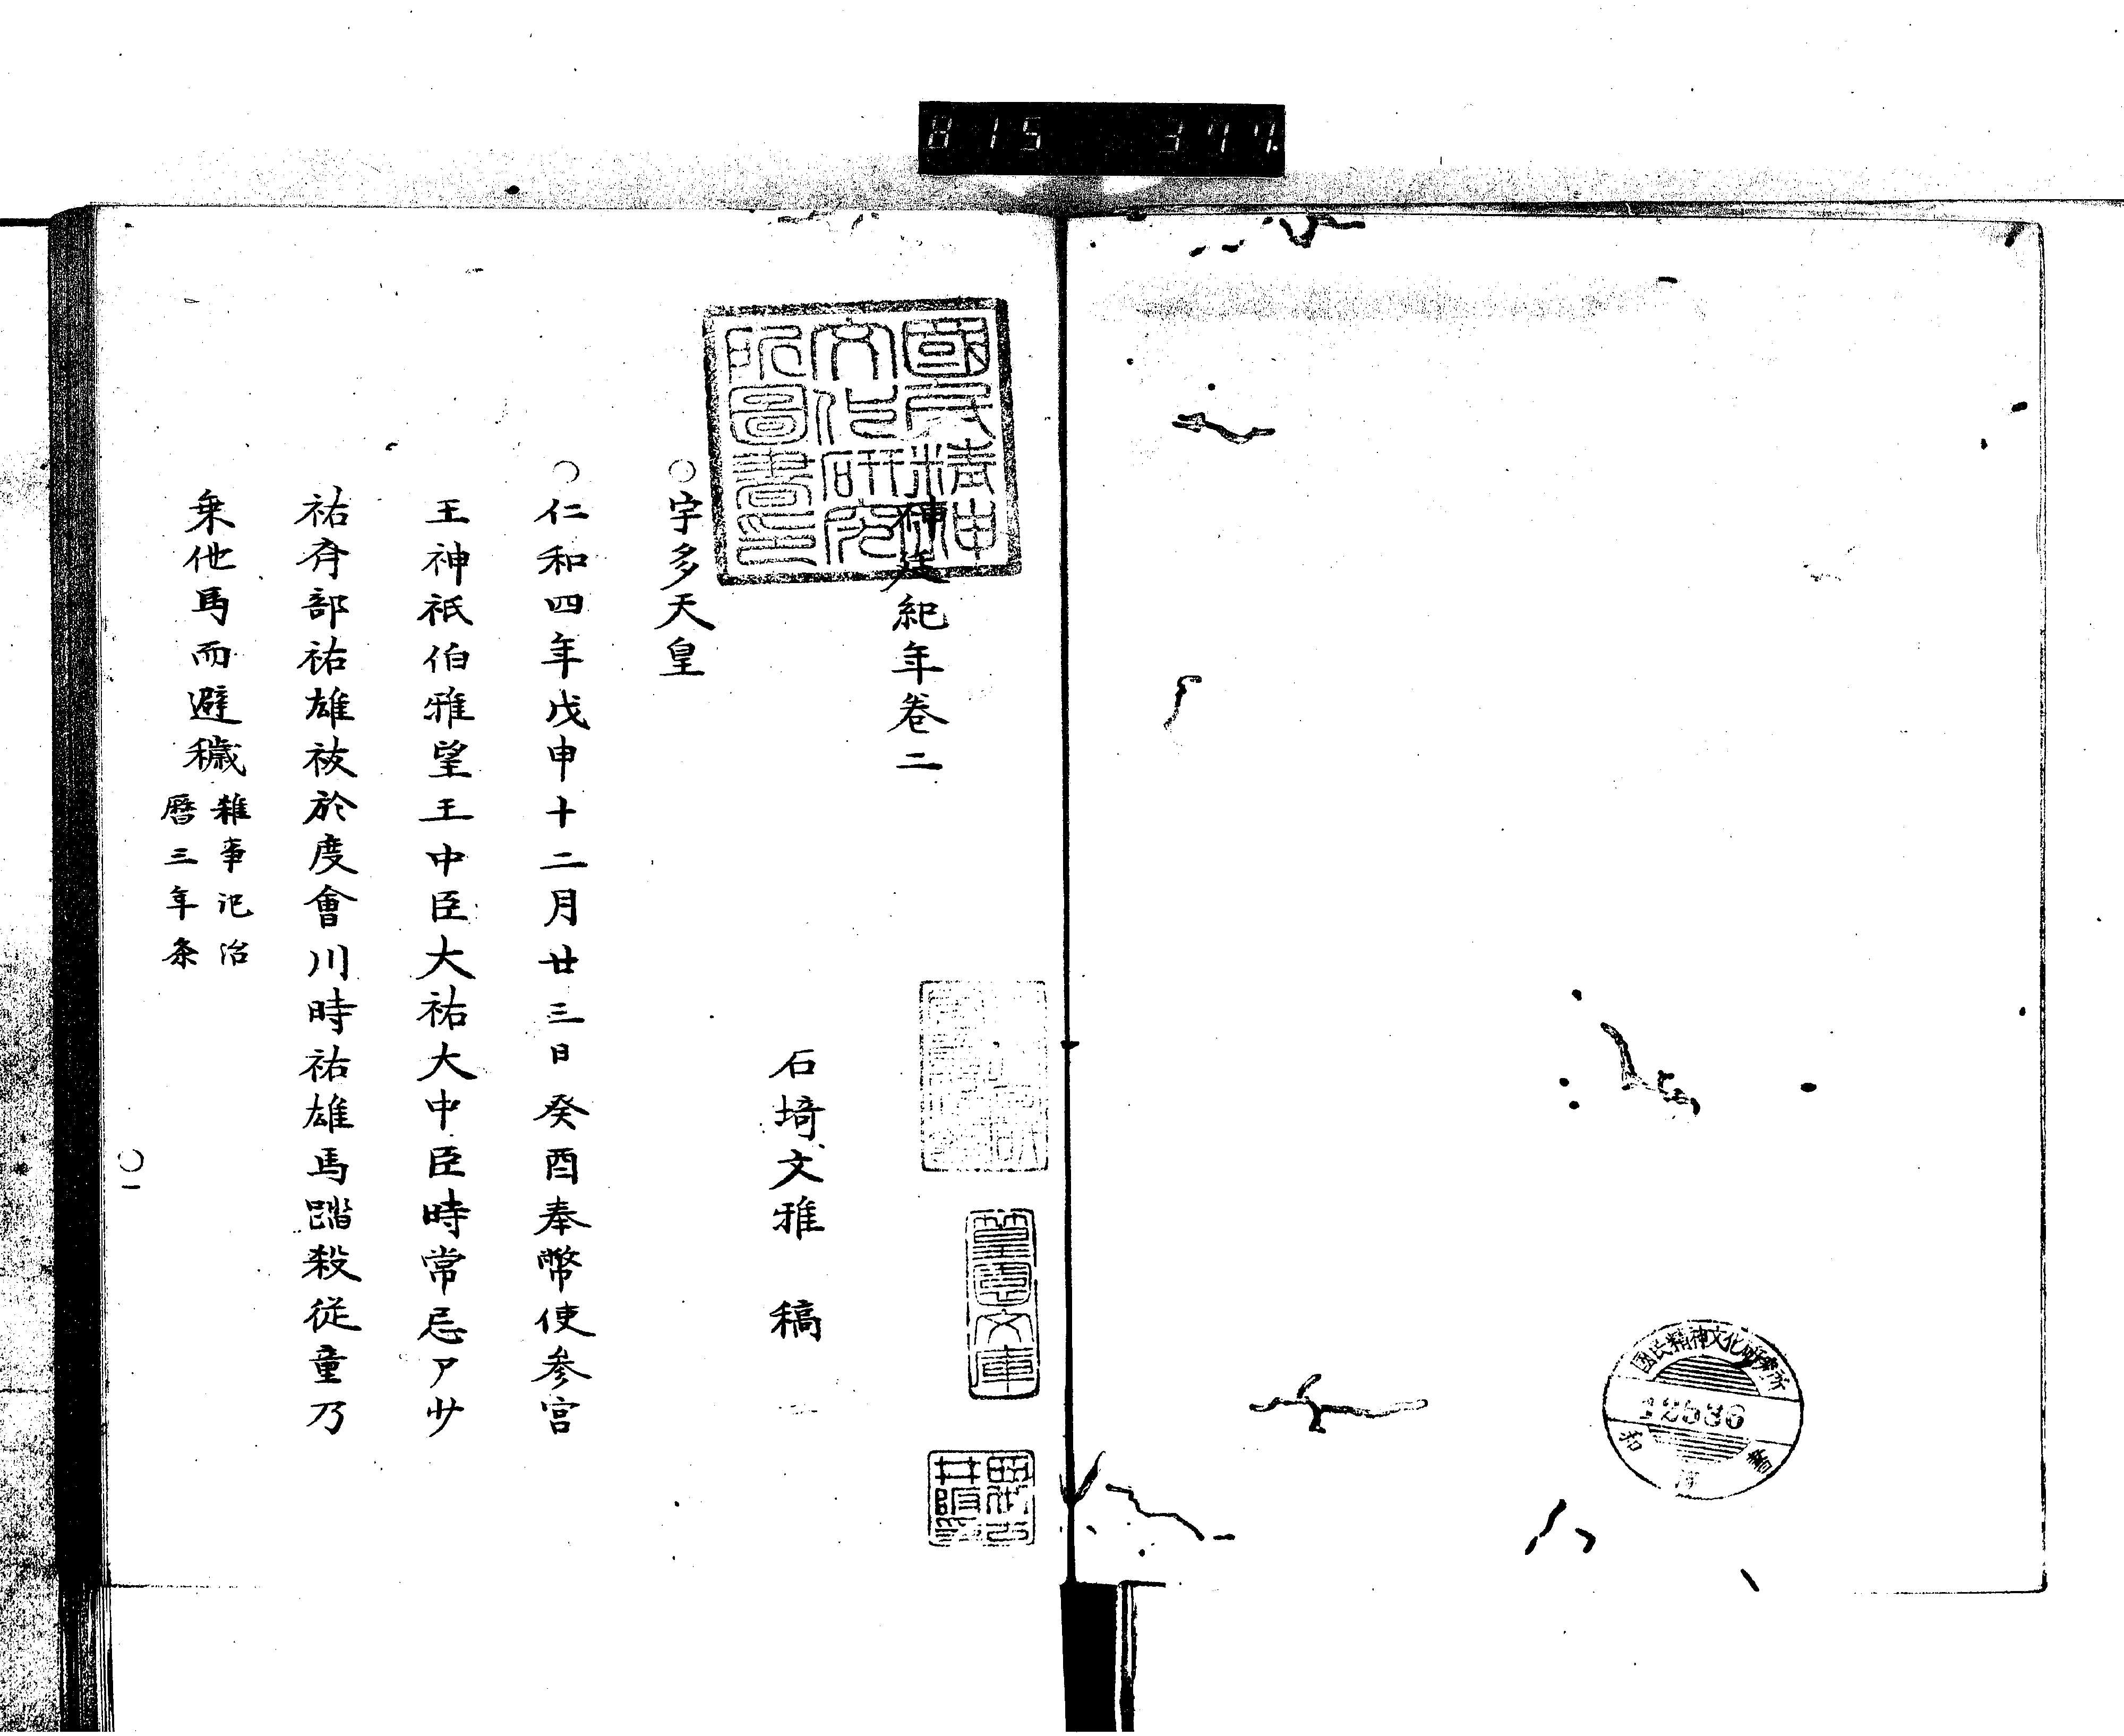 815 377
國民精神
文化研究
所圖書印
神廷紀年卷二
石埼文雅 稿
○宇多天皇
○仁和四年戊申十二月廿三日癸酉奉幣使参宮
王神祇伯雅望王中臣大祐大中臣時常忌ア少
祐斉部祐雄祓於度會川時祐雄馬踏殺従童乃
乗他馬而避穢
雑事記治
暦三年条
〇一
文庫
井阪
國民精神文化研究所
12586
和書